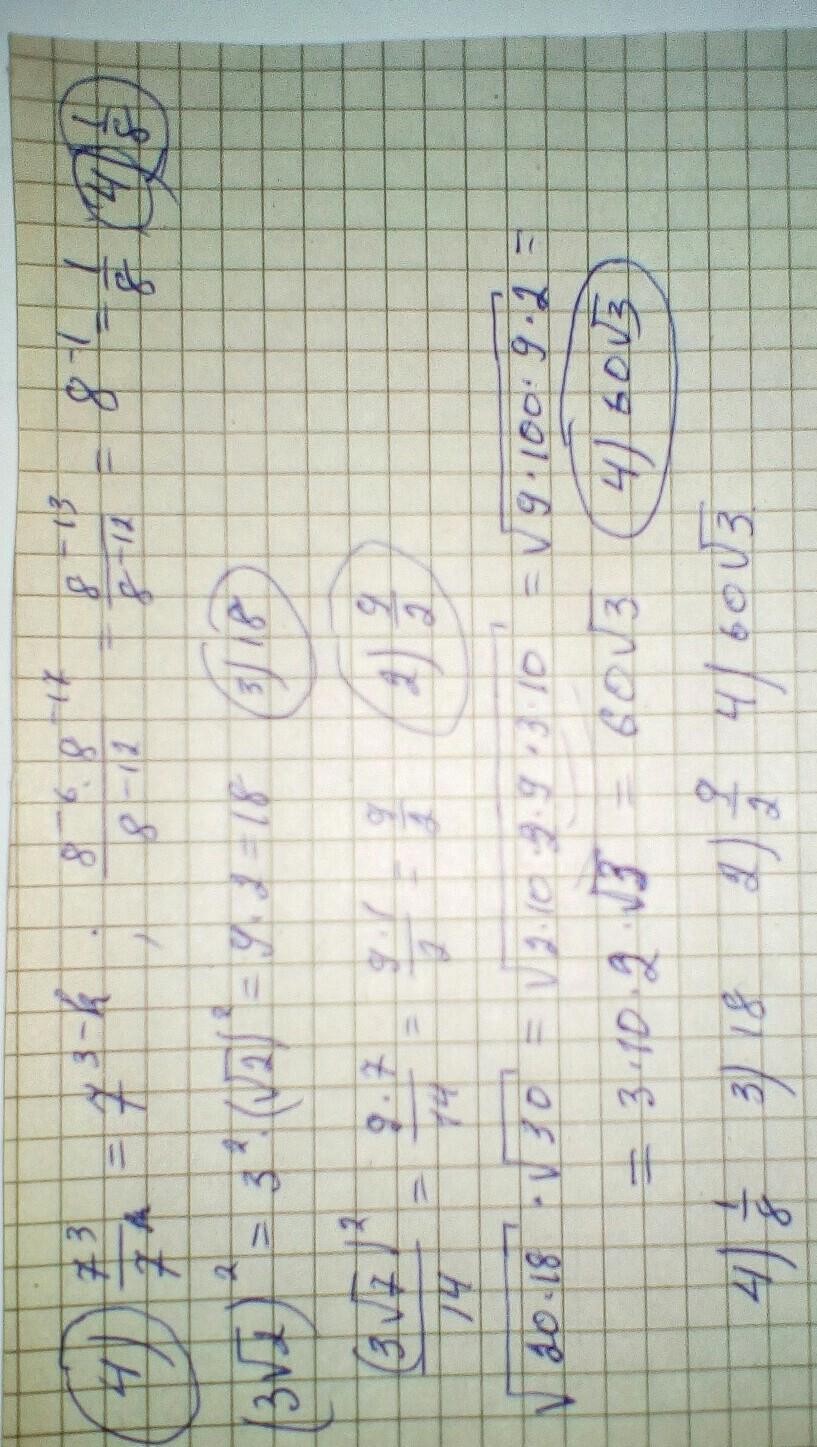 4) 7^3/7^k = 7^(3-k) . , (8^-6 · 8^-17)/8^-12 = 8^-13/8^-12 = 8^-1 = 1/8 4) 1/8
(3√2)^2 = 3^2 · (√2)^2 = 9 · 2 = 18 3) 18
(3√7)^2/14 = 9·7/14 = 9·1/2 = 9/2 2) 9/2
√20·18 · √30 = √2·10·2·9·3·10 = √9·100·9·2 =
= 3·10·2·√3 = 60√3 4) 60√3
4) 1/8 3) 18 2) 9/2 4) 60√3